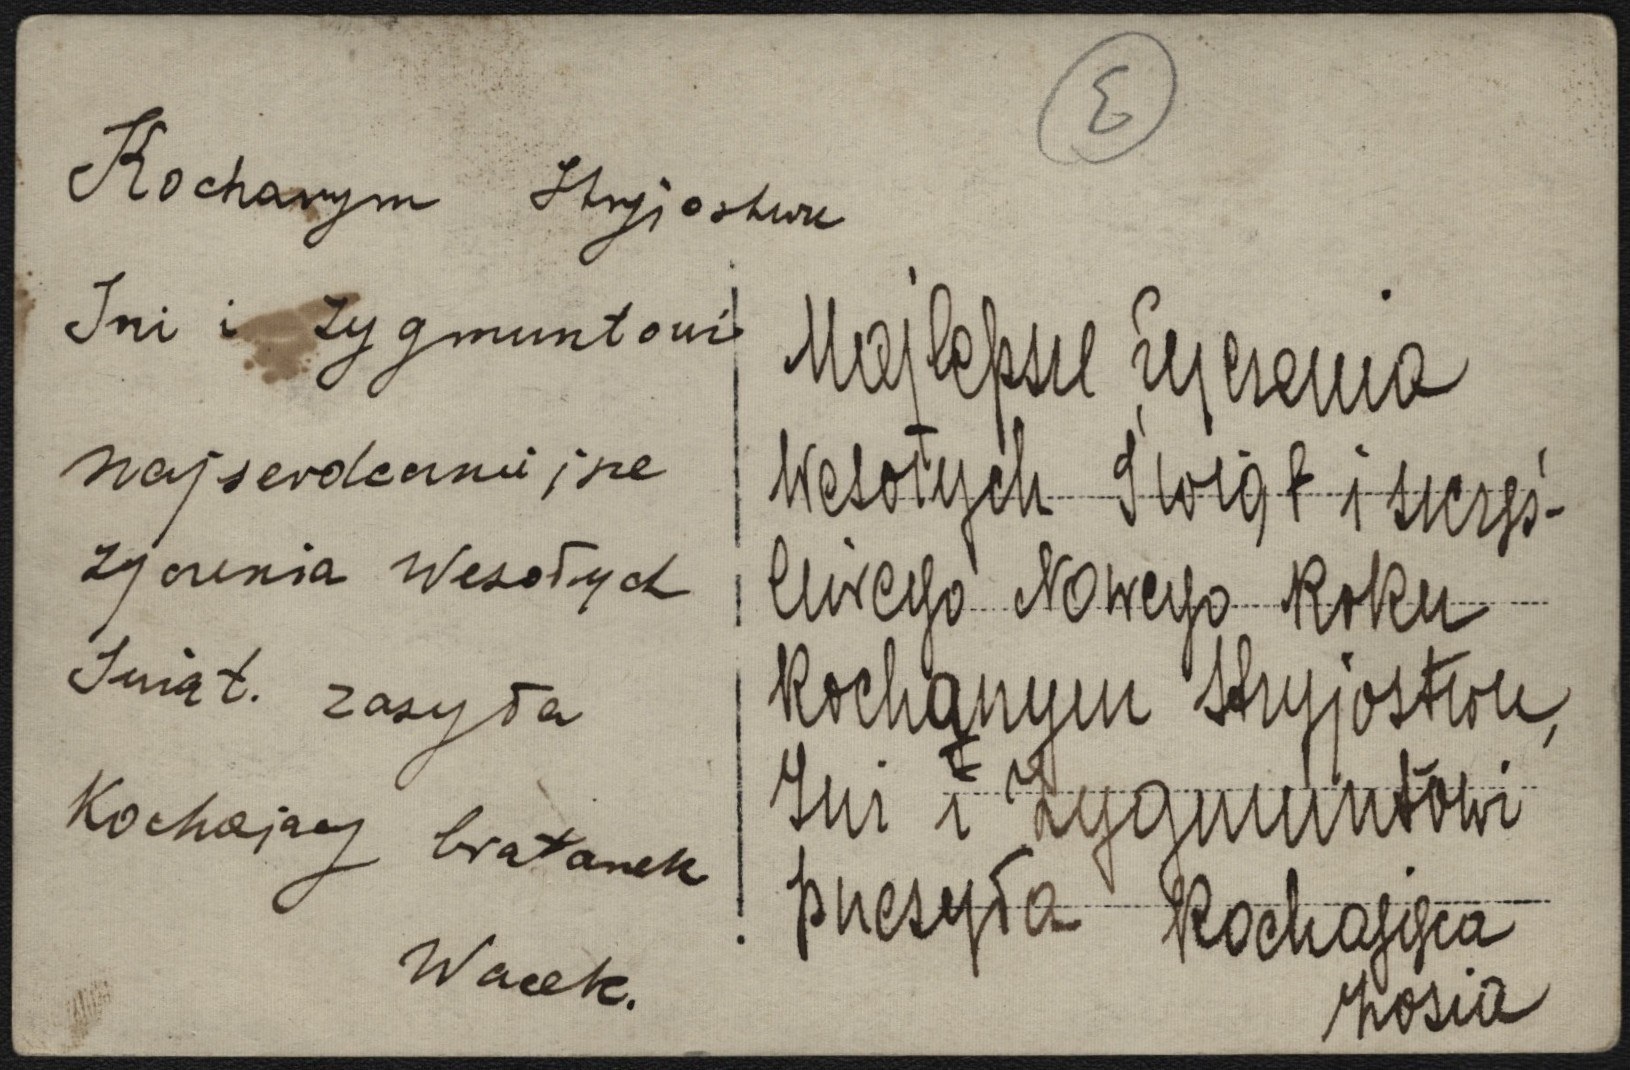 Kochanym Stryjostwu
Ini i Zygmuntowi
Najserdeczniejsze
życzenia Wesołych
Świąt. zasyła
Kochający bratanek
Wacek.
Najlepsze życzenia
Wesołych Świąt i szczęś-
liwego Nowego Roku
Kochanym Stryjostwu,
Ini i Zygmuntowi
przesyła Kochająca
Zosia